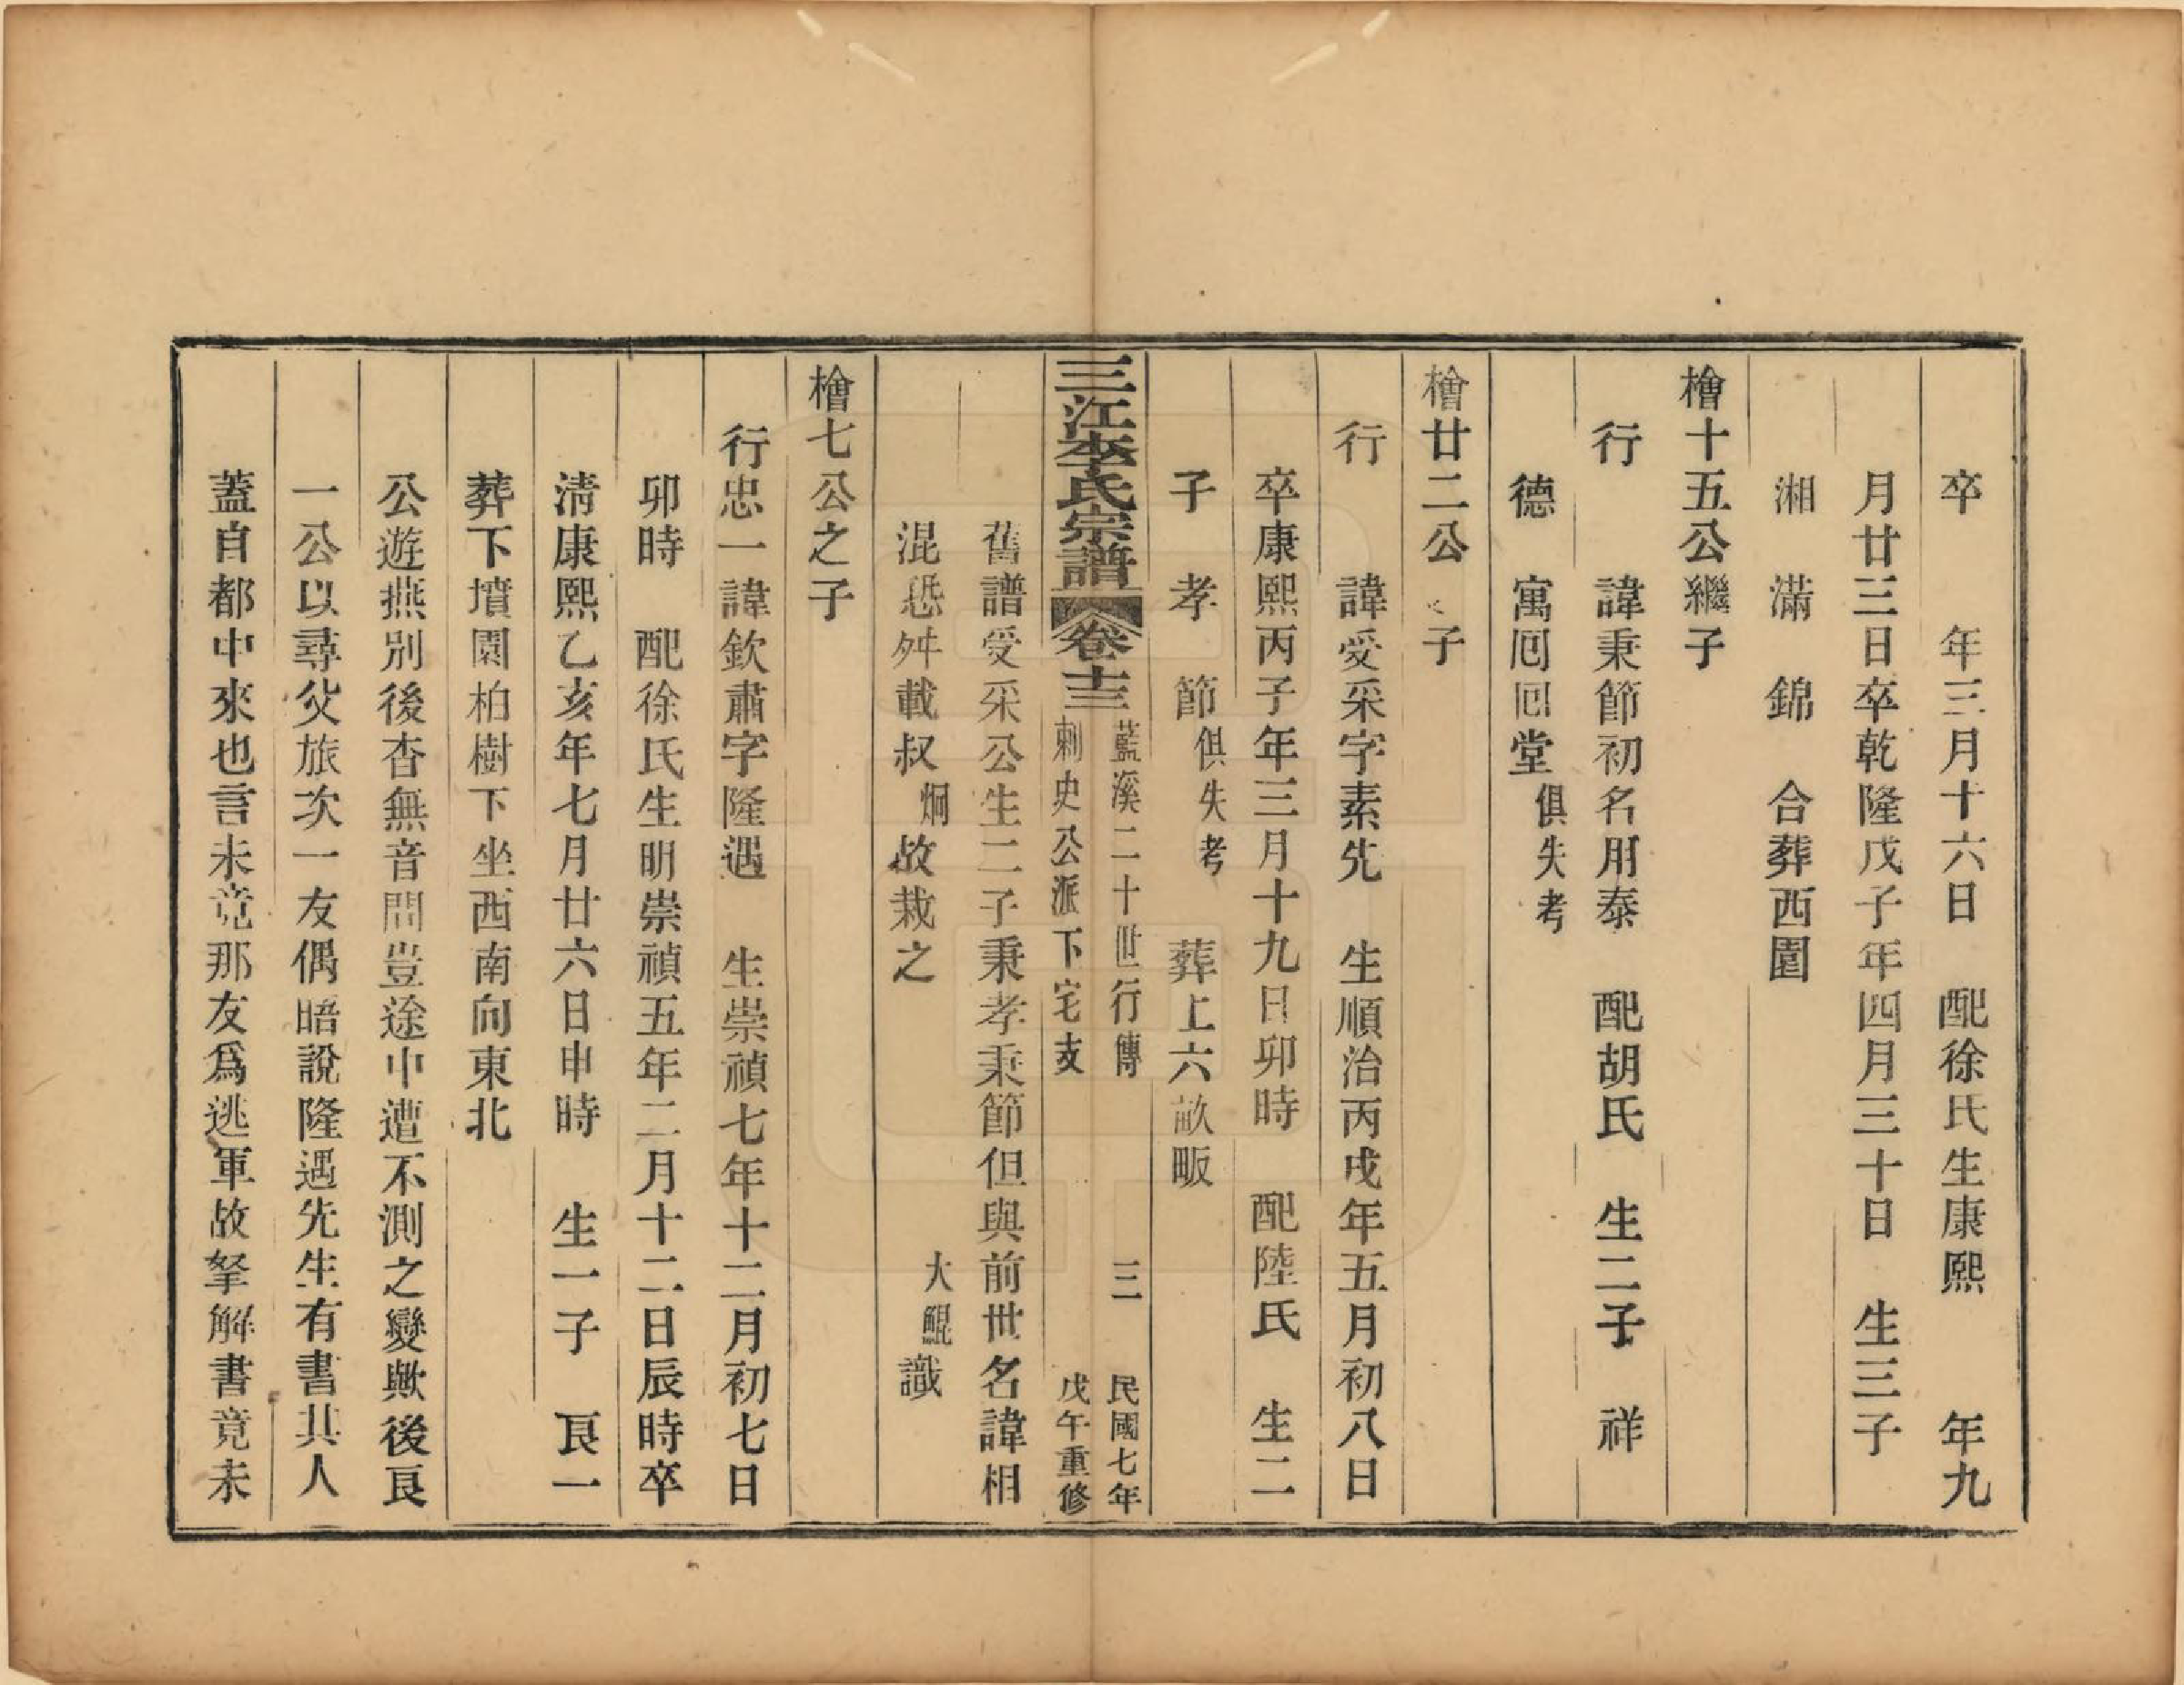 卒　年三月十六日　配徐氏生康熙　年九
月廿三日卒乾隆戊子年四月三十日　生三子
湘　滿　錦　合葬西園
檜十五公繼子
行　諱秉節初名用泰　配胡氏　生二子　祥
德　寓囘囘堂俱失考
檜廿二公之子
行　諱受采字素先　生順治丙戌年五月初八日
卒康熙丙子年三月十九日卯時　配陸氏　生二
子　孝　節俱失考　葬上六畝畈
三江李氏宗譜　卷十三　藍溪二十世行傳　三　民國七年
刺史公派下宅支　戊午重修
舊譜受采公生二子秉孝秉節但與前世名諱相
混恐舛載叔炯故栽之　大鯤識
檜七公之子
行忠一諱欽肅字隆遇　生崇禎七年十二月初七日
卯時　配徐氏生明崇禎五年二月十二日辰時卒
淸康熙乙亥年七月廿六日申時　生一子　良一
葬下墳園柏樹下坐西南向東北
公遊燕別後杳無音問豈途中遭不測之變歟後良
一公以尋父旅次一友偶晤說隆遇先生有書其人
蓋自都中來也言未竟那友爲逃軍故拏解書竟未